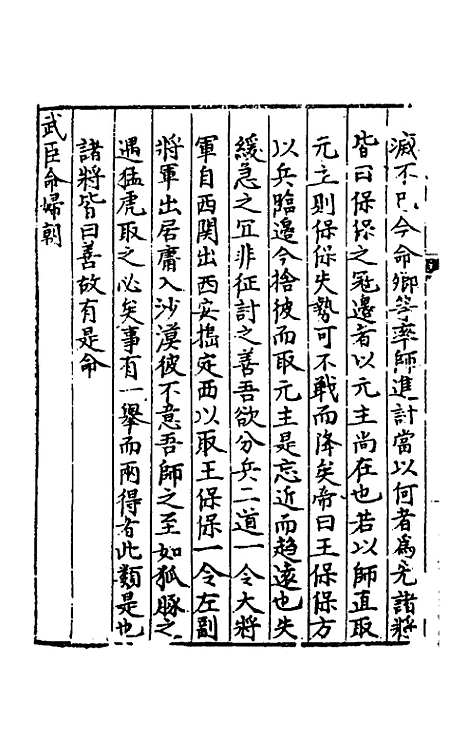 滅不已今命卿等率師進討當以何者爲先諸將
皆曰保保之冦邊者以元主尚在也若以師直取
元主則保保失勢可不戰而降矣帝曰王保保方
以兵臨邊今捨彼而取元主是忘近而趨遠也失
緩急之冝非征討之善吾欲分兵二道一令大將
軍自西關出西安搗定西以取王保保一令左副
將軍出居庸入沙漠彼不意吾師之至如狐豚之
遇猛虎取之必矣事有一舉而兩得者此類是也
諸將皆曰善故有是命
武臣命婦朝